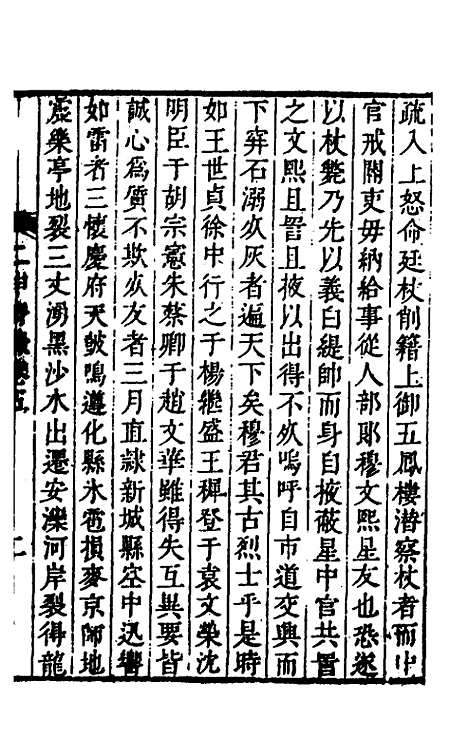 疏入上怒命廷杖削籍上御五鳳樓潜察杖者而中
官戒關吏毋納給事從人部郎穆文熙星友也恐遂
以杖斃乃先以義白緹帥而身自掖蔽星中官共詈
之文熙且詈且掖以出得不死嗚呼自市道交興而
下穽石溺死灰者遍天下矣穆君其古烈士乎是時
如王世貞徐中行之于楊繼盛王穉登于袁文榮沈
明臣于胡宗憲朱察卿于趙文華雖得失互異要皆
誠心爲質不欺死友者三月直隷新城縣空中迅響
如雷者三懷慶府天皷鳴遵化縣氷雹損麥京師地
震樂亭地裂三丈湧黑沙水出遷安灤河岸裂得龍
二申野錄卷五